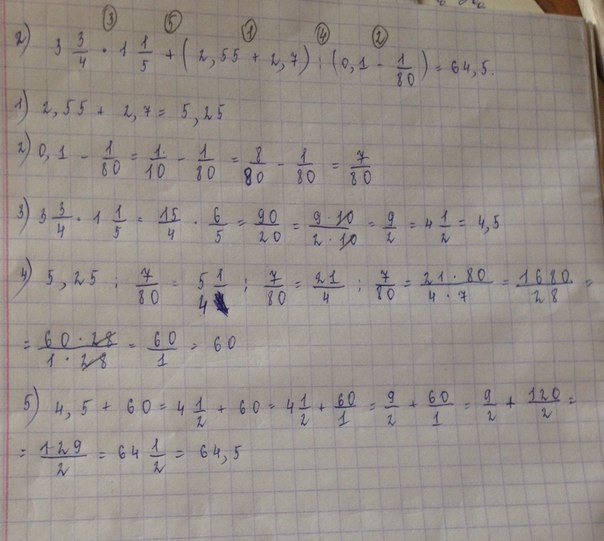 ③ ⑤ ① ④ ②
2) 3 3/4 · 1 1/5 + ( 2,55 + 2,7) : (0,1 - 1/80) = 64,5.
1) 2,55 + 2,7 = 5,25
2) 0,1 - 1/80 = 1/10 - 1/80 = 8/80 - 1/80 = 7/80
3) 3 3/4 · 1 1/5 = 15/4 · 6/5 = 90/20 = 9·10/2·10 = 9/2 = 4 1/2 = 4,5
4) 5,25 : 7/80 = 5 1/4 : 7/80 = 21/4 : 7/80 = 21·80/4·7 = 1680/28 =
= 60·28/1·28 = 60/1 = 60
5) 4,5 + 60 = 4 1/2 + 60 = 4 1/2 + 60/1 = 9/2 + 60/1 = 9/2 + 120/2 =
= 129/2 = 64 1/2 = 64,5